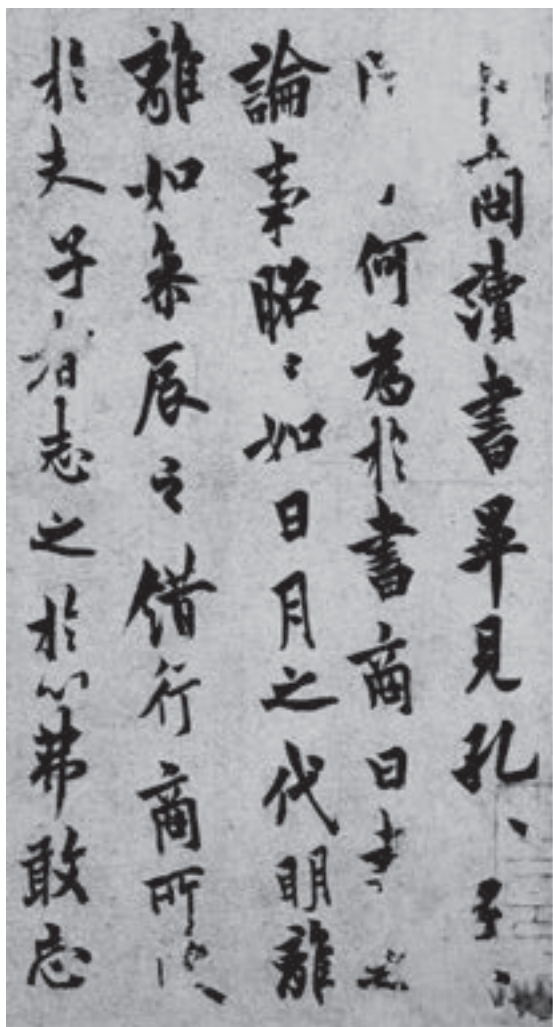 商讀書畢見孔〻子〻
何為於書商曰書
論事昭〻如日月之代明離
離如參辰之錯行商所受
於夫子者志之於心弗敢忘